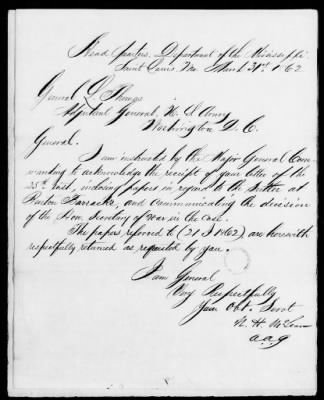 Head Quarters, Department of the Mississippi
Saint Louis, Mo. March 31st 1862.
General L Thomas
Adjutant General, U. S. Army
Washington D. C.
General.
I am instructed by the Major General Com-
manding to acknowledge the receipt of your letter of the
25th inst, inclosing papers in regard to the Sutler at
Benton Barracks, and communicating the decision
of the Hon. Secretary of War in the case.
The papers referred to (21 S 1862) are herewith
respectfully returned as requested by you.
I am General
Very Respectfully
Your Obt. Servt
N. H. McLean
a.a.g